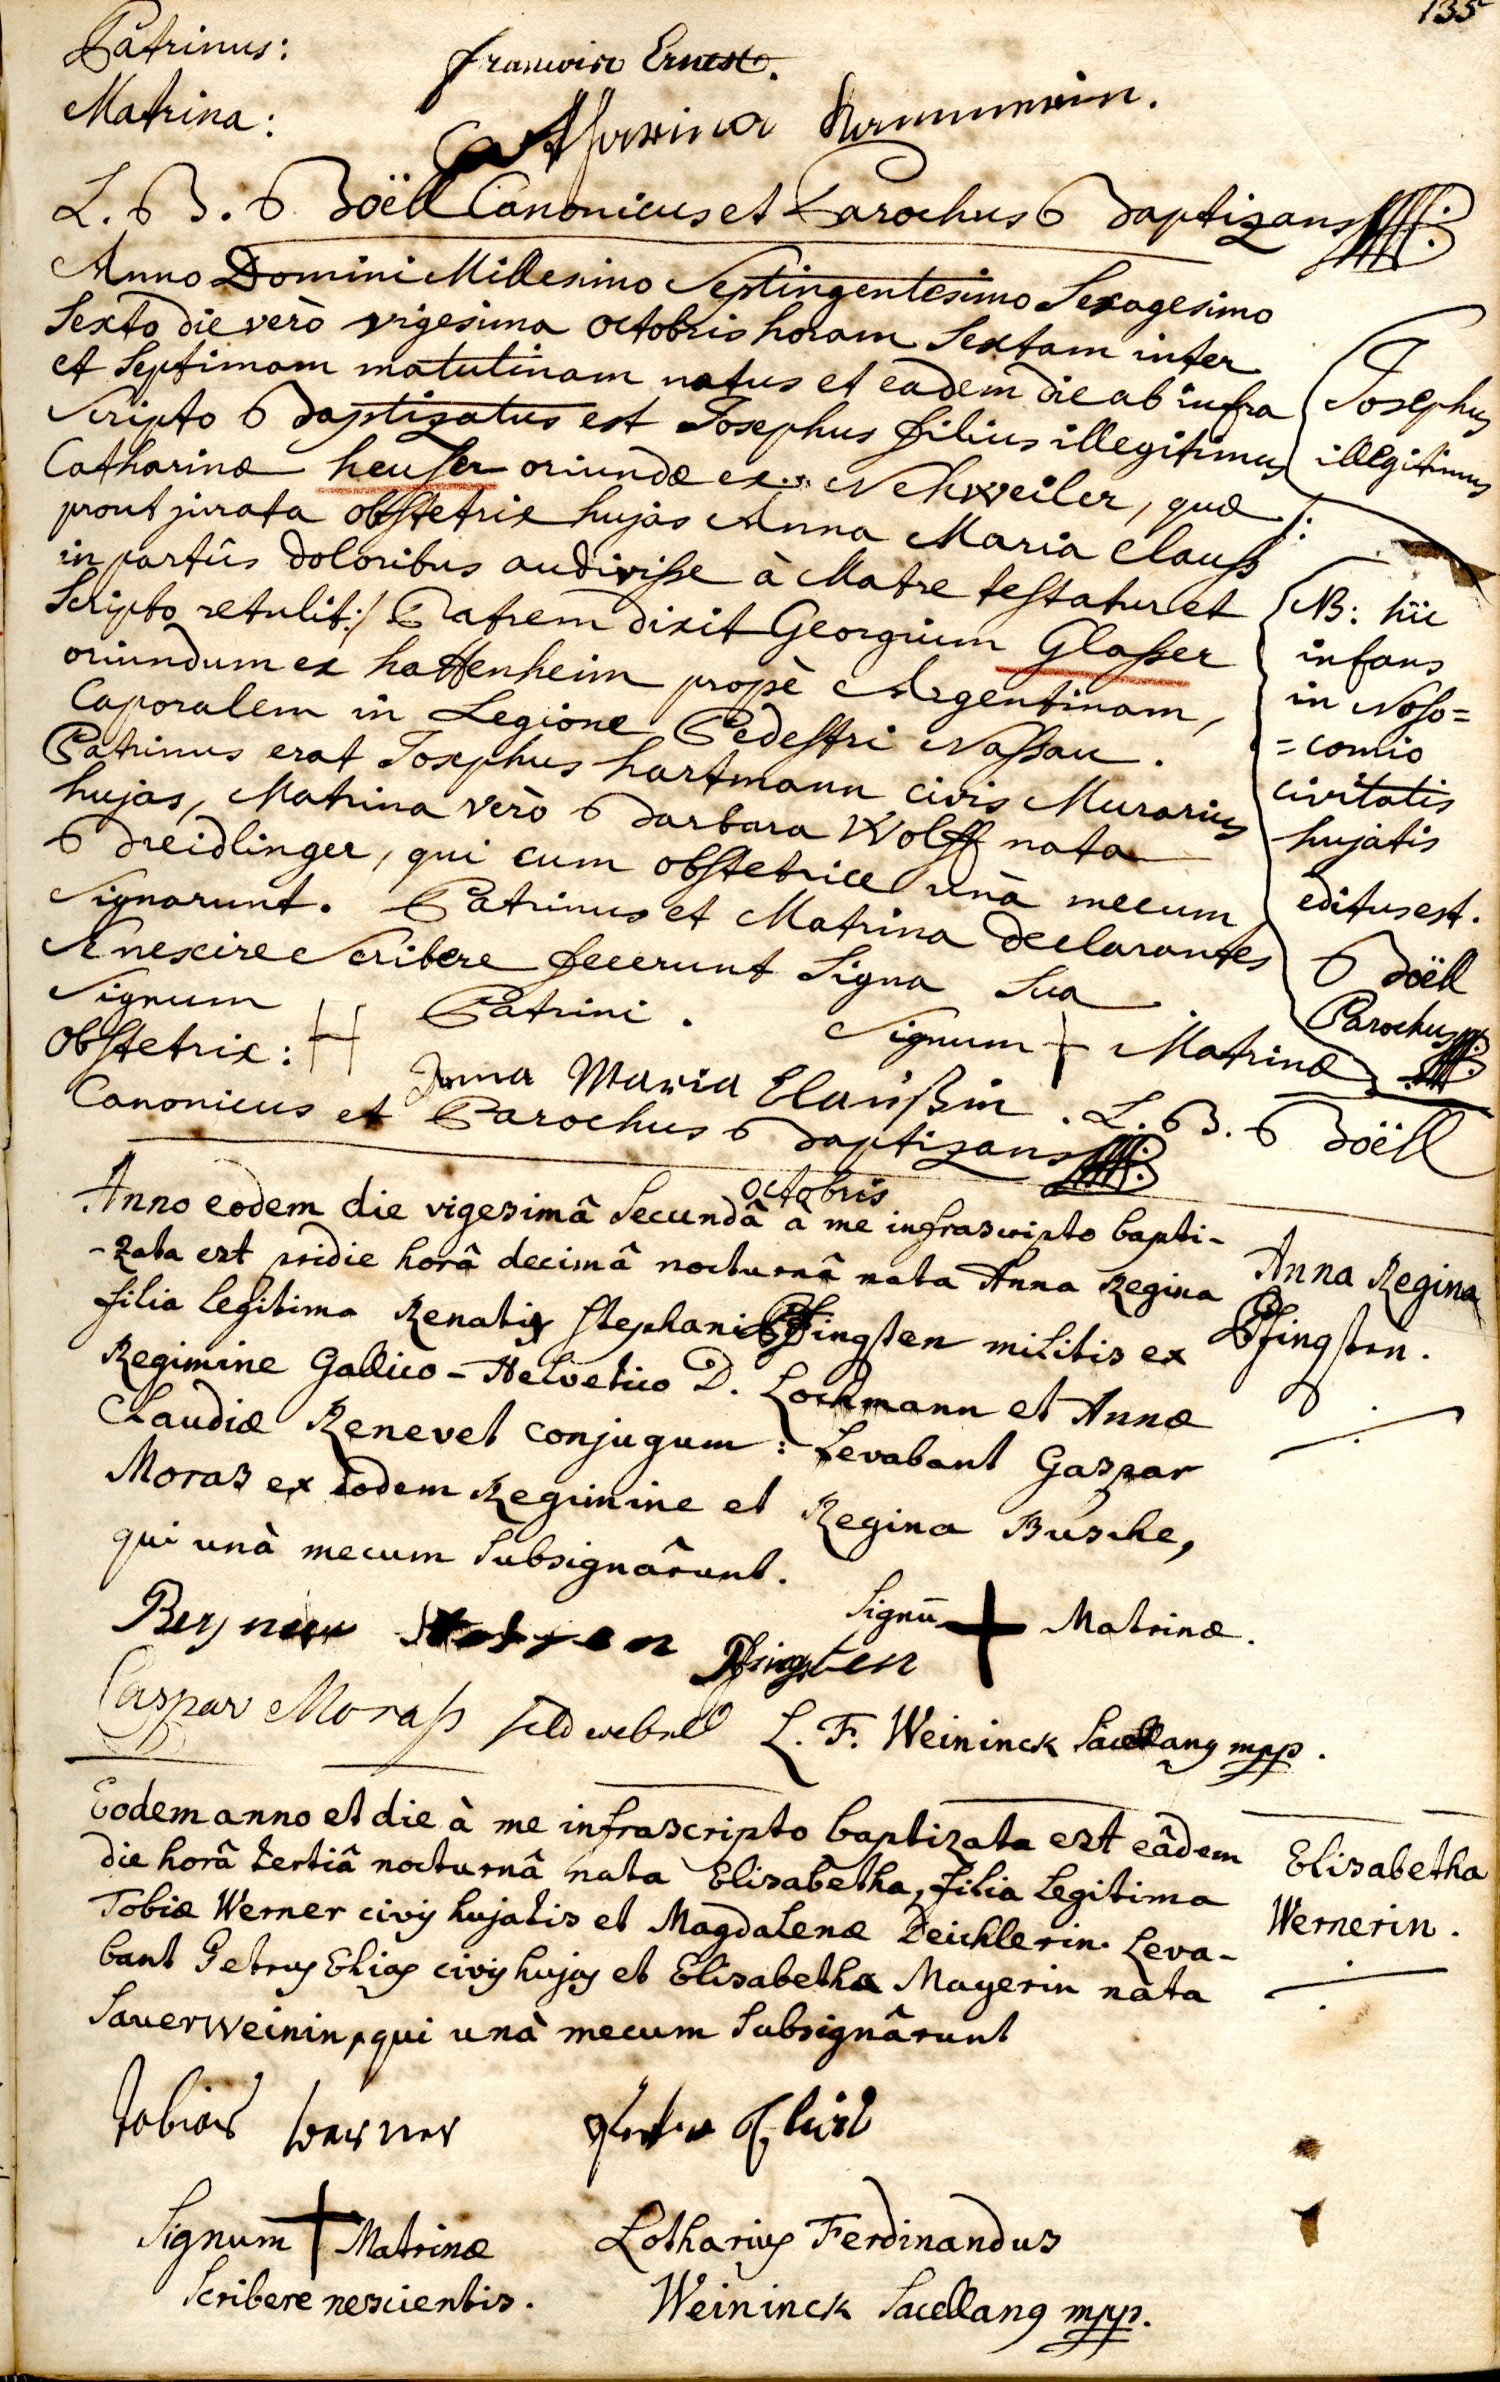 135
Patrinus: francoise Ernest.
Matrina: Catharina
L. B. Böell Canonicus et Parochus Baptizans
Anno Domini Millesimo Septingentesimo Sexagesimo
Sexto die verò vigesima octobris horam Sextam inter
et Septimam matutinam natus et eadem die ab infra
Scripto Baptizatus est Josephus filius illegitimus
Catharinæ heuser oriundæ ex Nehweiler, quæ /:
prout jurata obstetrix hujas Anna Maria Clauß
in partûs doloribus audivisse à Matre testatur et
Scripto retulit:/ Patrem dixit Georgium Glasser
oriundum ex hattenheim propè Argentinam,
Caporalem in Legione Pedestri Nassau.
Patrinus erat Josephus hartmann civis Murarius
hujas, Matrina verò Barbara Wolff nata
Breidlinger, qui cum obstetrice unà mecum
Signarunt. Patrinus et Matrina declarantes
Se nescire Scribere fecerunt Signa Sua
Signum H Patrini. Signum + Matrinæ
Obstetrix: Anna Maria Claußin. L. B. Böell
Canonicus et Parochus Baptizans
Josephus
illegitimus
NB: hic
infans
in Noso=
=comio
civitatis
hujatis
editus est.
Böell
Parochus
Anno eodem die vigesimâ Secundâ octobris à me infrascripto bapti-
-zata est pridie horâ decimâ nocturnâ nata Anna Regina
filia legitima Renati Stephani Pfingsten militis ex
Regimine Gallico-Helvetico D. Lochmann et Annæ
Claudiæ Renevet conjugum: Levabant Gaspar
Moras ex eodem Regimine et Regina Busche,
qui unà mecum Subsignârunt.
Anna Regina
Pfingsten.
Pfingsten Signū + Matrinæ.
Caspar Moraß feldwebel L. F. Weininck Sacellang mpp.
Eodem anno et die à me infrascripto baptizata est eâdem
die horâ tertiâ nocturnâ nata Elisabetha, filia Legitima
Tobiæ Werner civis hujatis et Magdalenæ Deichlerin. Leva-
bant Petrus Elias civis hujas et Elisabetha Mayerin nata
Sauerweinin, qui unà mecum Subsignârunt
Elisabetha
Wernerin.
Tobias werner Petrus Elias
Signum + Matrinæ
Scribere nescientis.
Lotharius Ferdinandus
Weininck Sacellang mpp.